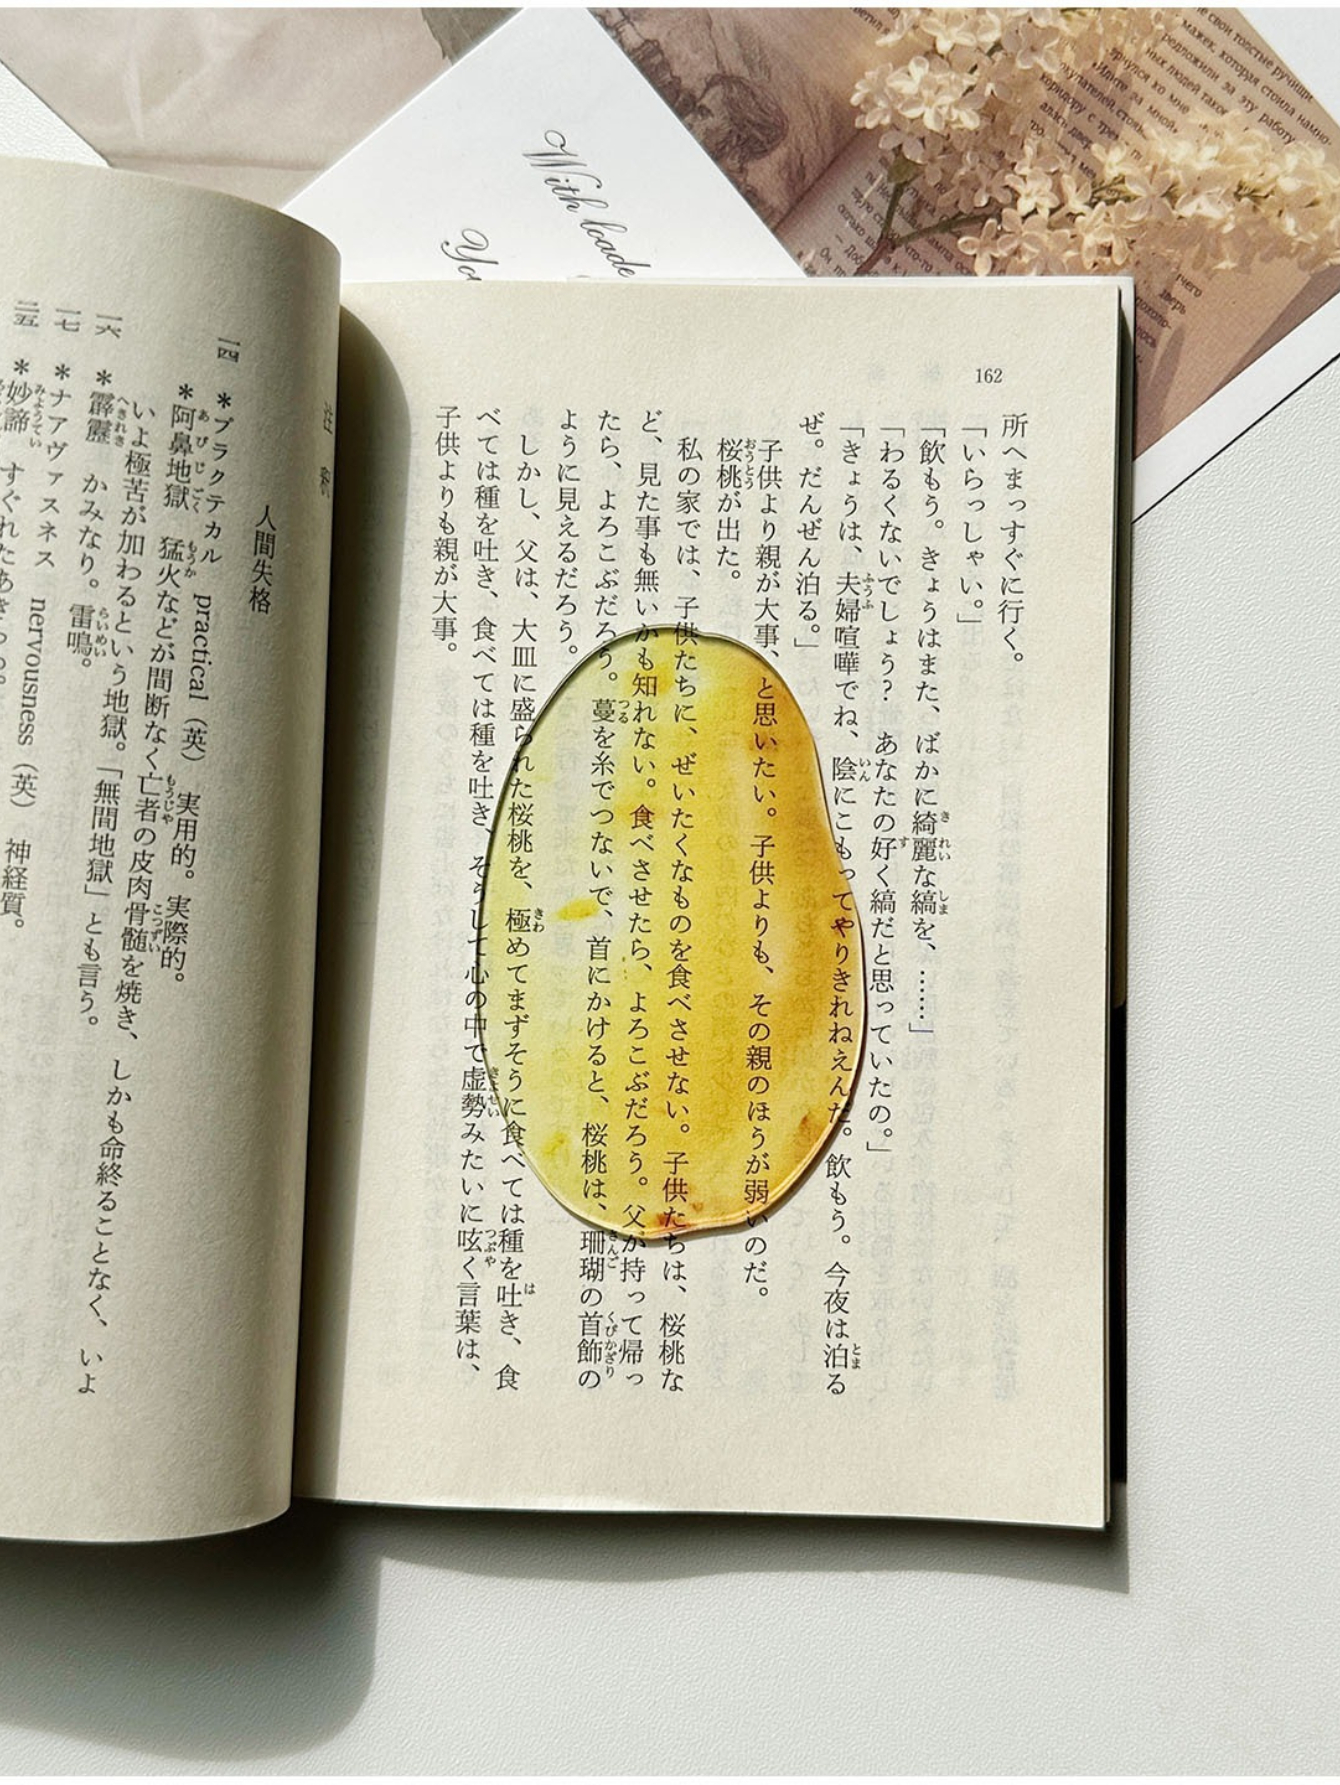 162
所へまっすぐに行く。
「いらっしゃい。」
「飲もう。きょうはまた、ばかに綺麗な縞を、……」
「わるくないでしょう？　あなたの好く縞だと思っていたの。」
「きょうは、夫婦喧嘩でね、陰にこもってやりきれねえんだ。飲もう。今夜は泊る
ぜ。だんぜん泊る。」
子供より親が大事、と思いたい。子供よりも、その親のほうが弱いのだ。
桜桃が出た。
私の家では、子供たちに、ぜいたくなものを食べさせない。子供たちは、桜桃な
ど、見た事も無いかも知れない。食べさせたら、よろこぶだろう。父が持って帰っ
たら、よろこぶだろう。蔓を糸でつないで、首にかけると、桜桃は、珊瑚の首飾の
ように見えるだろう。
しかし、父は、大皿に盛られた桜桃を、極めてまずそうに食べては種を吐き、食
べては種を吐き、食べては種を吐き、そうして心の中で虚勢みたいに呟く言葉は、
子供よりも親が大事。
人間失格
一四　＊プラクテカル　practical（英）　実用的。実際的。
＊阿鼻地獄　猛火などが間断なく亡者の皮肉骨髄を焼き、しかも命終ることなく、いよ
いよ極苦が加わるという地獄。「無間地獄」とも言う。
一六　＊霹靂　かみなり。雷鳴。
一七　＊ナアヴァスネス　nervousness（英）　神経質。
二五　＊妙諦
With loade